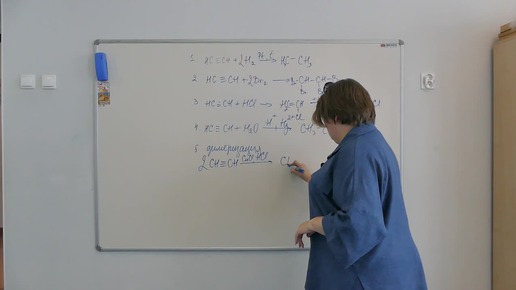 1. HC≡CH + 2H₂ Pt, t → H₃C – CH₃
2 HC≡CH + 2Br₂ → Br – CH – CH – Br
Br Br
3 HC≡CH + HCl → H₂C = CH
4 HC≡CH + H₂O H⁺, Hg²⁺ → CH₃ – C
5 димеризация
2 CH≡CH CuCl, HCl → CH